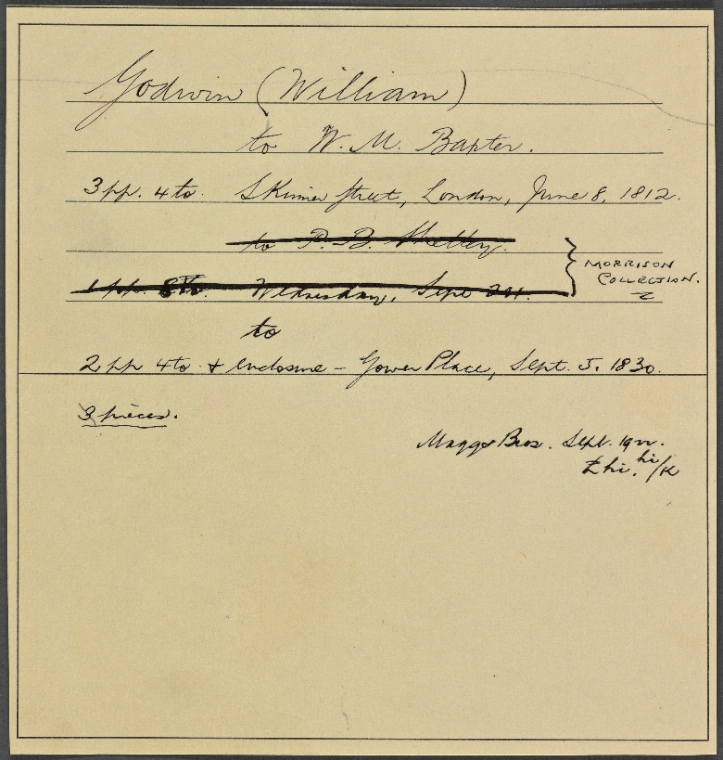 Godwin (William)
to W. M. Baxter.
3 pp. 4to. Skinner Street, London, June 8, 1812.
to P. B. Shelley.
1 pp. 8vo. Wednesday, Sept 24.
MORRISON
COLLECTION.
to
2 pp 4to & enclosure - Gower Place, Sept. 5. 1830.
3 pieces.
Maggs Bros. Sept.